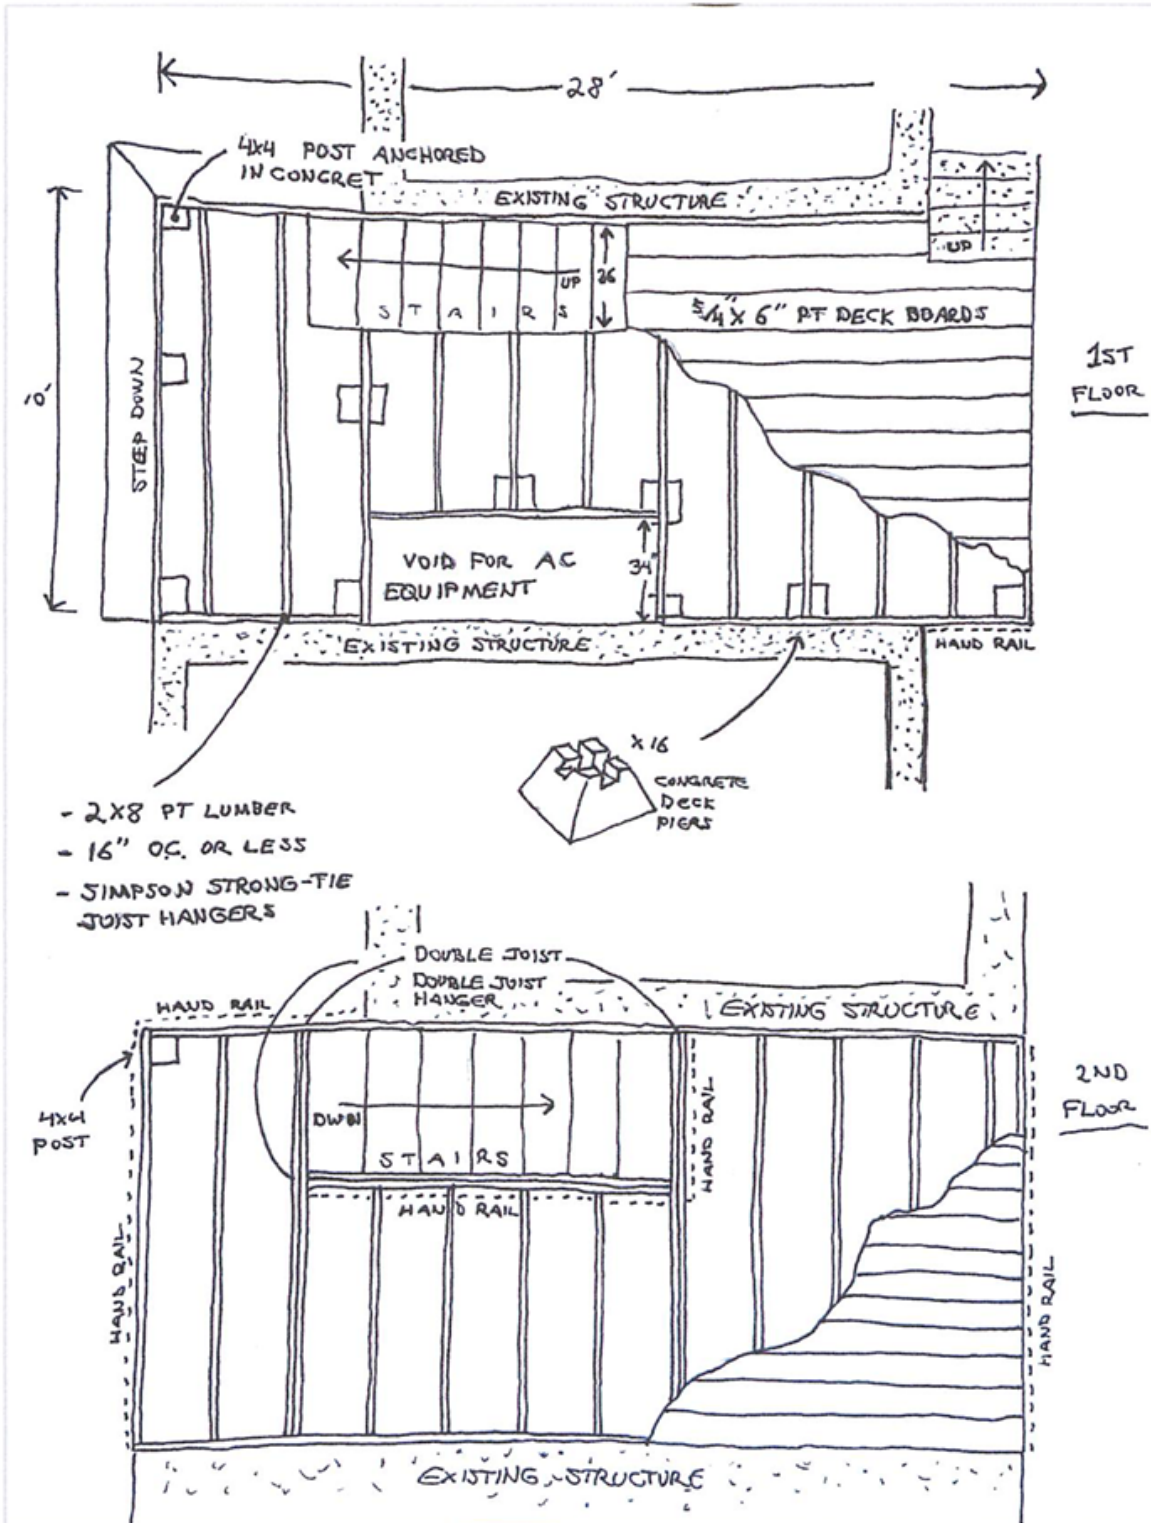 28'
4x4 POST ANCHORED
IN CONCRET
EXISTING STRUCTURE
UP
UP
26
STAIRS
5/4" x 6" PT DECK BOARDS
1ST
FLOOR
10'
STEP DOWN
VOID FOR AC
EQUIPMENT
34"
EXISTING STRUCTURE
HAND RAIL
x16
CONCRETE
DECK
PIERS
- 2x8 PT LUMBER
- 16" O.C. OR LESS
- SIMPSON STRONG-TIE
JOIST HANGERS
DOUBLE JOIST
DOUBLE JOIST
HANGER
HAND RAIL
EXISTING STRUCTURE
4x4
POST
DWN
STAIRS
HAND RAIL
HAND RAIL
2ND
FLOOR
HAND RAIL
HAND RAIL
EXISTING STRUCTURE